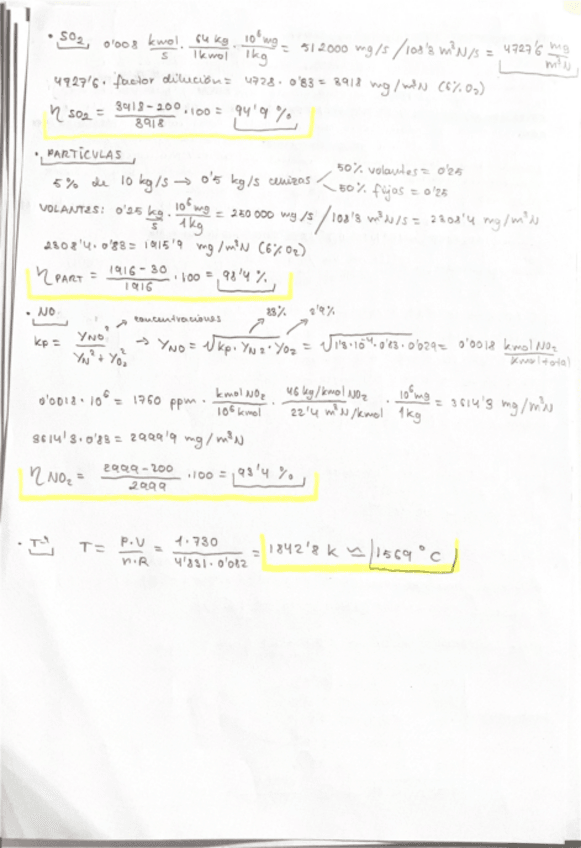 • SO₂ 0'008 kmol/s · 64 kg/1kmol · 10⁶ mg/1kg = 512000 mg/s / 108'3 m³N/s = 4727'6 mg/m³N
4727'6 · factor dilución = 4728 · 0'83 = 3918 mg/m³N (6% O₂)
η SO₂ = 3918 - 200 / 3918 · 100 = 94'9 %
• PARTÍCULAS
5% de 10 kg/s → 0'5 kg/s cenizas
50% volantes = 0'25
50% fijas = 0'25
VOLANTES: 0'25 kg/s · 10⁶ mg/1kg = 250000 mg/s / 108'3 m³N/s = 2308'4 mg/m³N
2308'4 · 0'83 = 1915'9 mg/m³N (6% O₂)
η PART = 1916 - 30 / 1916 · 100 = 98'4 %
• NO
concentraciones 83% 2'9%
Kp = YNO² / YN² + YO₂² → YNO = √Kp · YN2 · YO2 = √1'3·10⁻⁴ · 0'83 · 0'029 = 0'0018 kmol NO₂ / kmol total
0'0018 · 10⁶ = 1760 ppm · kmol NO₂/10⁶ kmol · 46 kg/kmol NO₂ / 22'4 m³N/kmol · 10⁶ mg/1kg = 3614'3 mg/m³N
3614'3 · 0'83 = 2999'9 mg/m³N
η NO₂ = 2999 - 200 / 2999 · 100 = 93'4 %
• Tª T = P·V / n·R = 1·730 / 4'831 · 0'082 = 1842'8 K ≃ 1569 °C